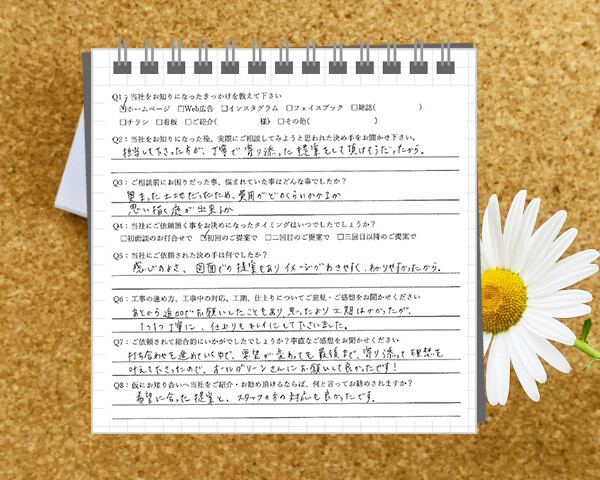 Q1：当社をお知りになったきっかけを教えて下さい
☑ホームページ □Web広告 □インスタグラム □フェイスブック □雑誌( )
□チラシ □看板 □ご紹介( 様) □その他( )
Q2：当社をお知りになった後、実際にご相談してみようと思われた決め手をお聞かせ下さい。
担当して下さった方が、丁寧で寄り添った提案をして頂けそうだったから。
Q3：ご相談前にお困りだった事、悩まれていた事はどんな事でしたか？
奥まった土地だったため、費用がどのくらいかかるか
思い描く庭が出来るか
Q4：当社にご依頼頂く事をお決めになったタイミングはいつでしたでしょうか？
□初面談のお打合せで ☑初回のご提案で □二回目のご提案で □三回目以降のご提案で
Q5：当社にご依頼された決め手は何でしたか？
感じのよさ、図面での提案もありイメージがわきやすく、わかりやすかったから。
Q6：工事の進め方、工事中の対応、工期、仕上りについてご意見・ご感想をお聞かせください
あとから追加でお願いしたこともあり、思ったより工期はかかったが、
1つ1つ丁寧に、仕上りもキレイにして下さいました。
Q7：ご依頼されて総合的にいかがでしたでしょうか？率直なご感想をお聞かせください
打ち合わせを進めていく中で、要望が変わっても最後まで、寄り添って理想を
叶えて下さったので、オールグリーンさんにお願いして良かったです！
Q8：仮にお知り合いへ当社をご紹介・お勧め頂けるならば、何と言ってお勧めされますか？
希望に合った提案と、スタッフの方の対応も良かったです。